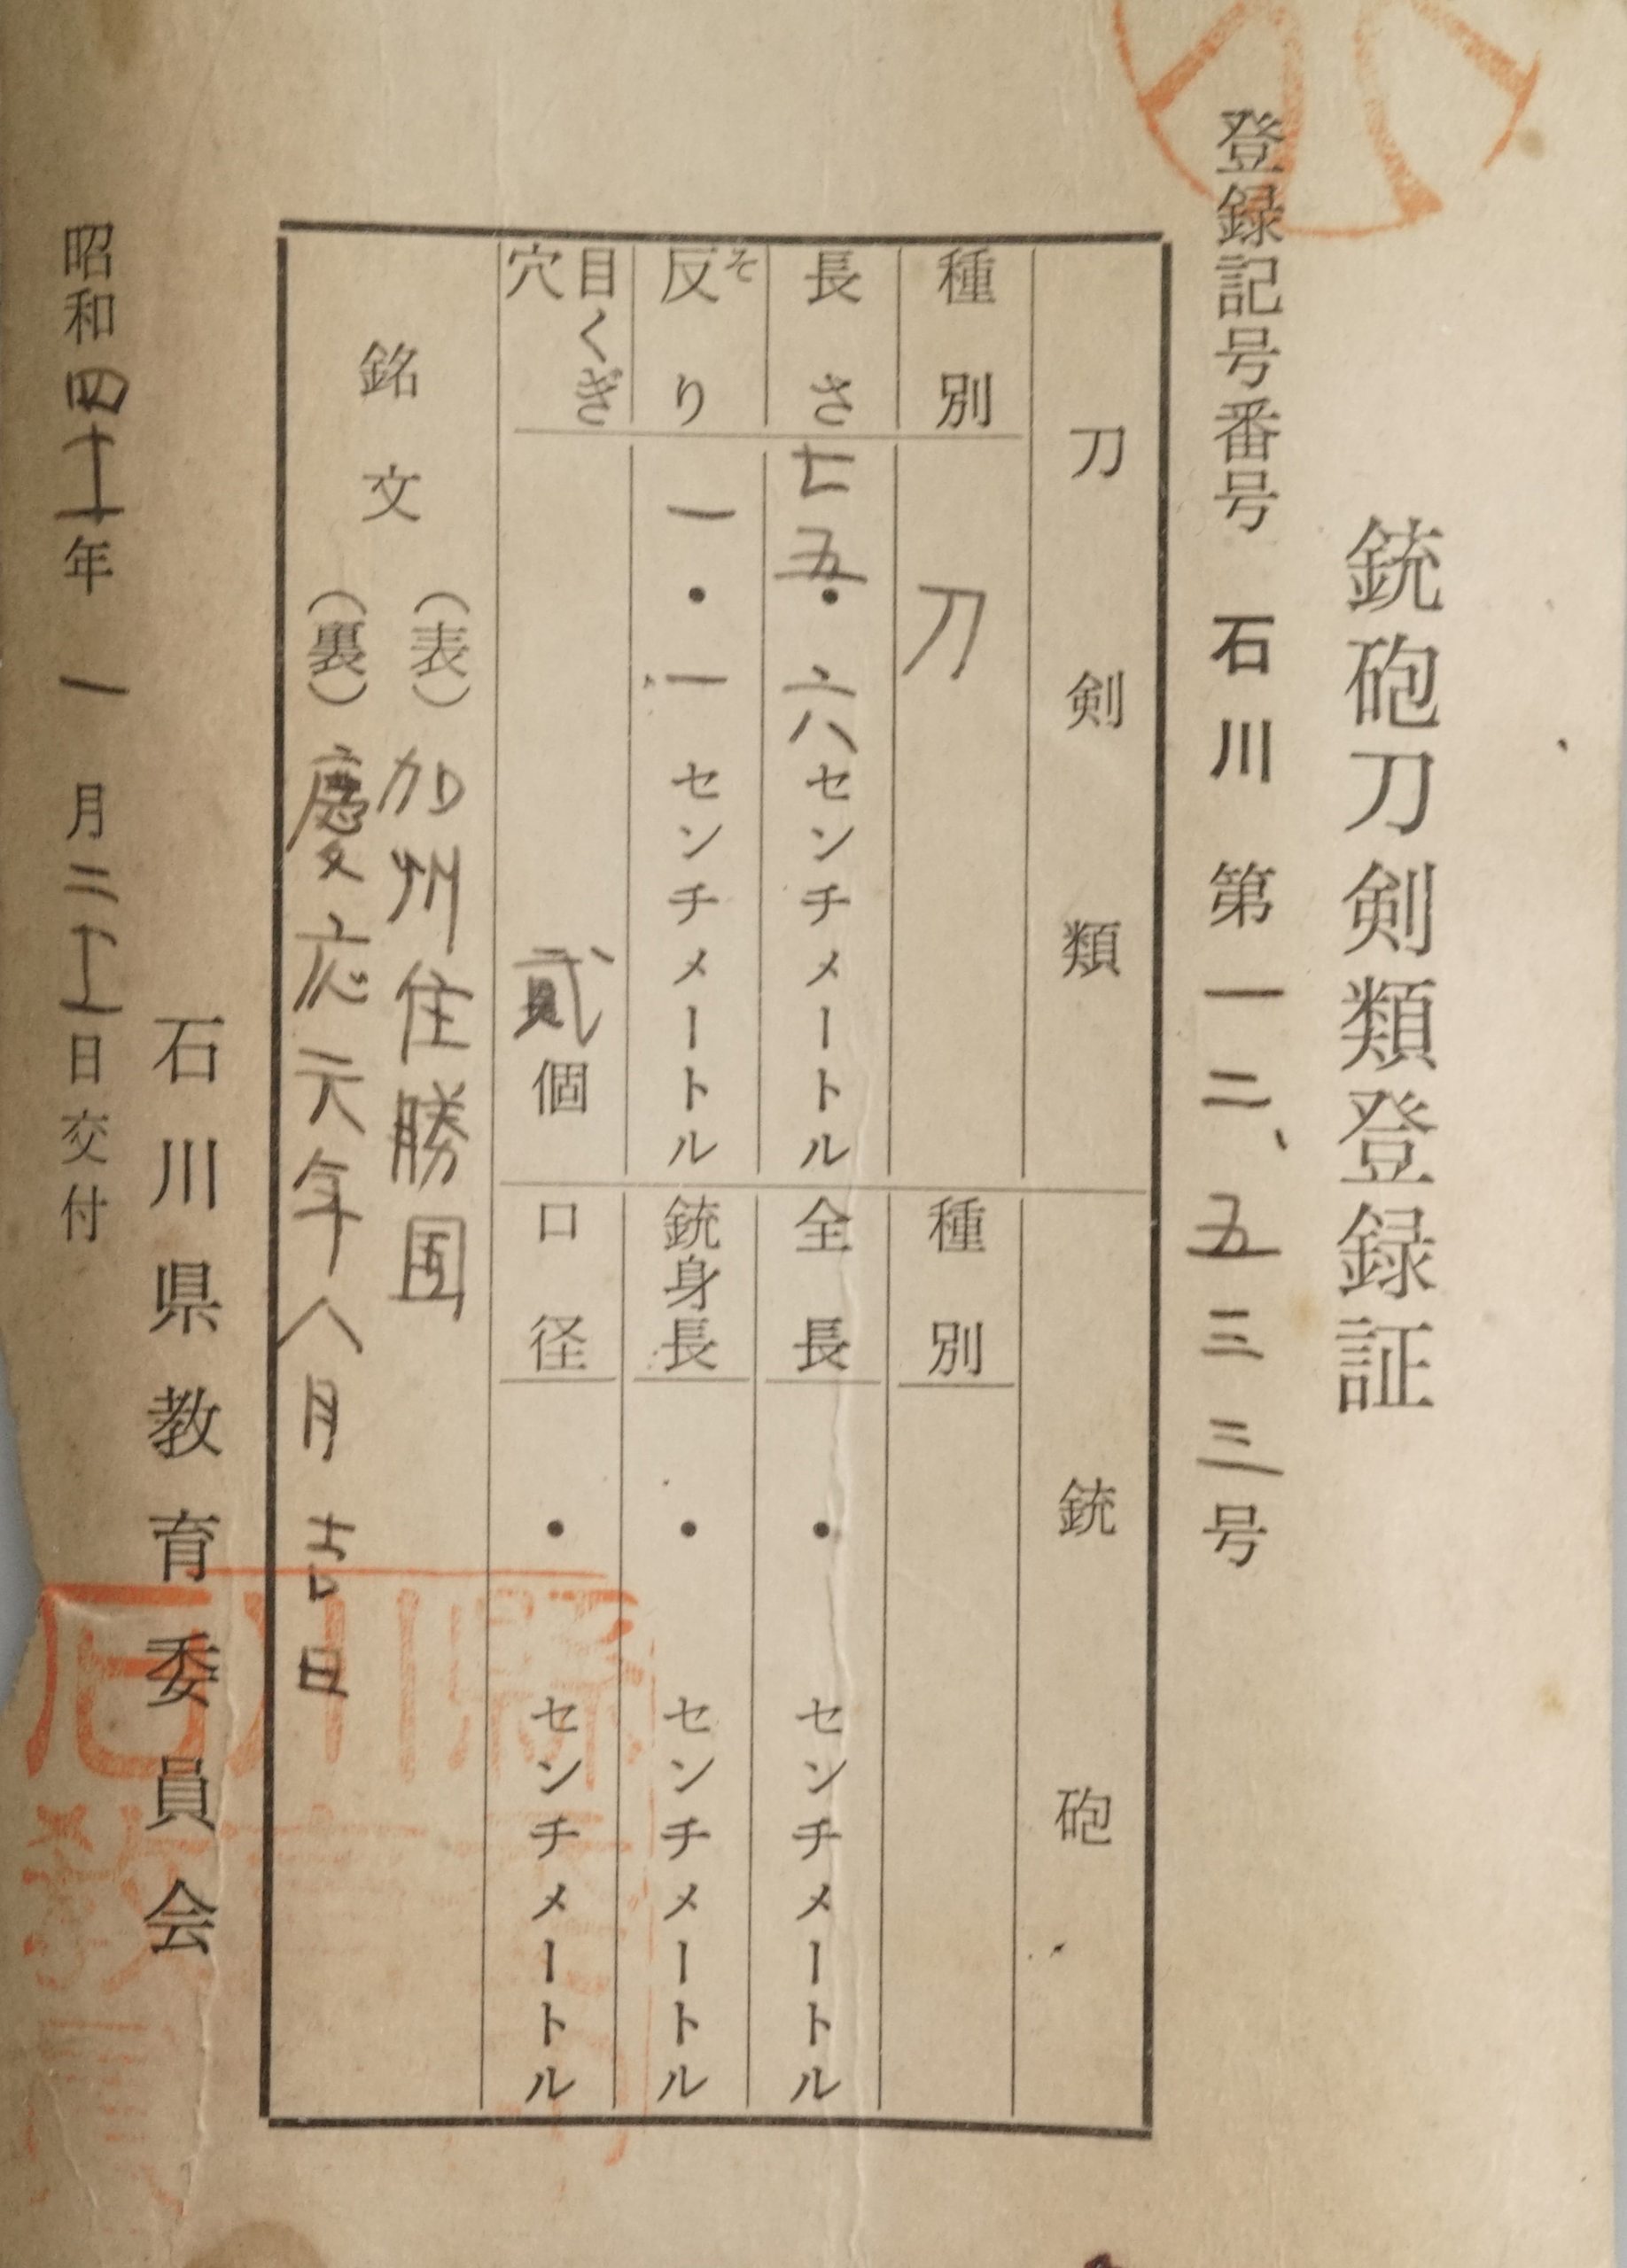 銃砲刀剣類登録証
登録記号番号 石川 第一二、五三三号
刀剣類
種別 刀
長さ 七五・六センチメートル
反り そ 一・一センチメートル
目くぎ穴 貳個
銃砲
種別
全長 ・ センチメートル
銃身長 ・ センチメートル
口径 ・ センチメートル
銘文
(表)加州住勝国
(裏)慶応元年八月吉日
石川県教育委員会
昭和四十一年 一月二十一日交付